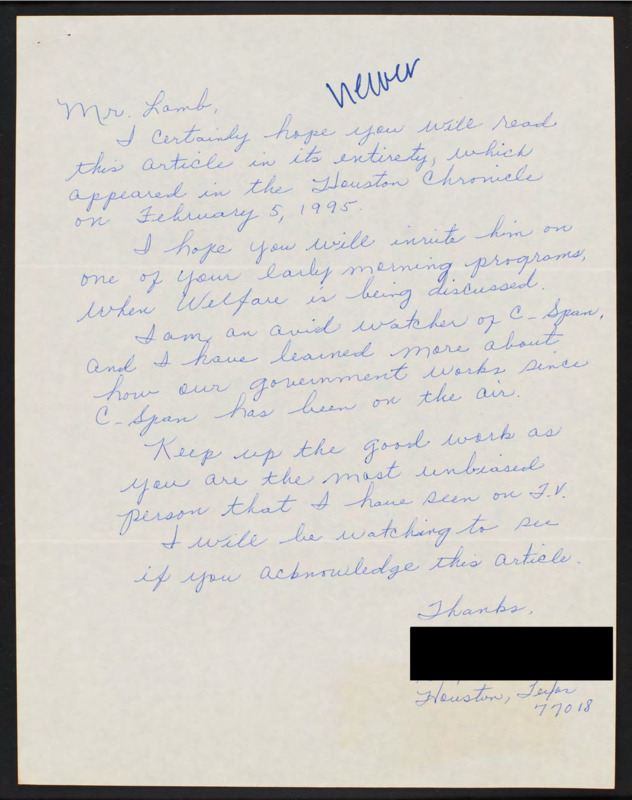 newer
Mr. Lamb,
I certainly hope you will read
this article in its entirety, which
appeared in the Houston Chronicle
on February 5, 1995.
I hope you will invite him on
one of your early morning programs,
when Welfare is being discussed.
I am an avid watcher of C-Span,
and I have learned more about
how our government works since
C-Span has been on the air.
Keep up the good work as
you are the most unbiased
person that I have seen on T.V.
I will be watching to see
if you acknowledge this article.
Thanks,
Houston, Texas
77018